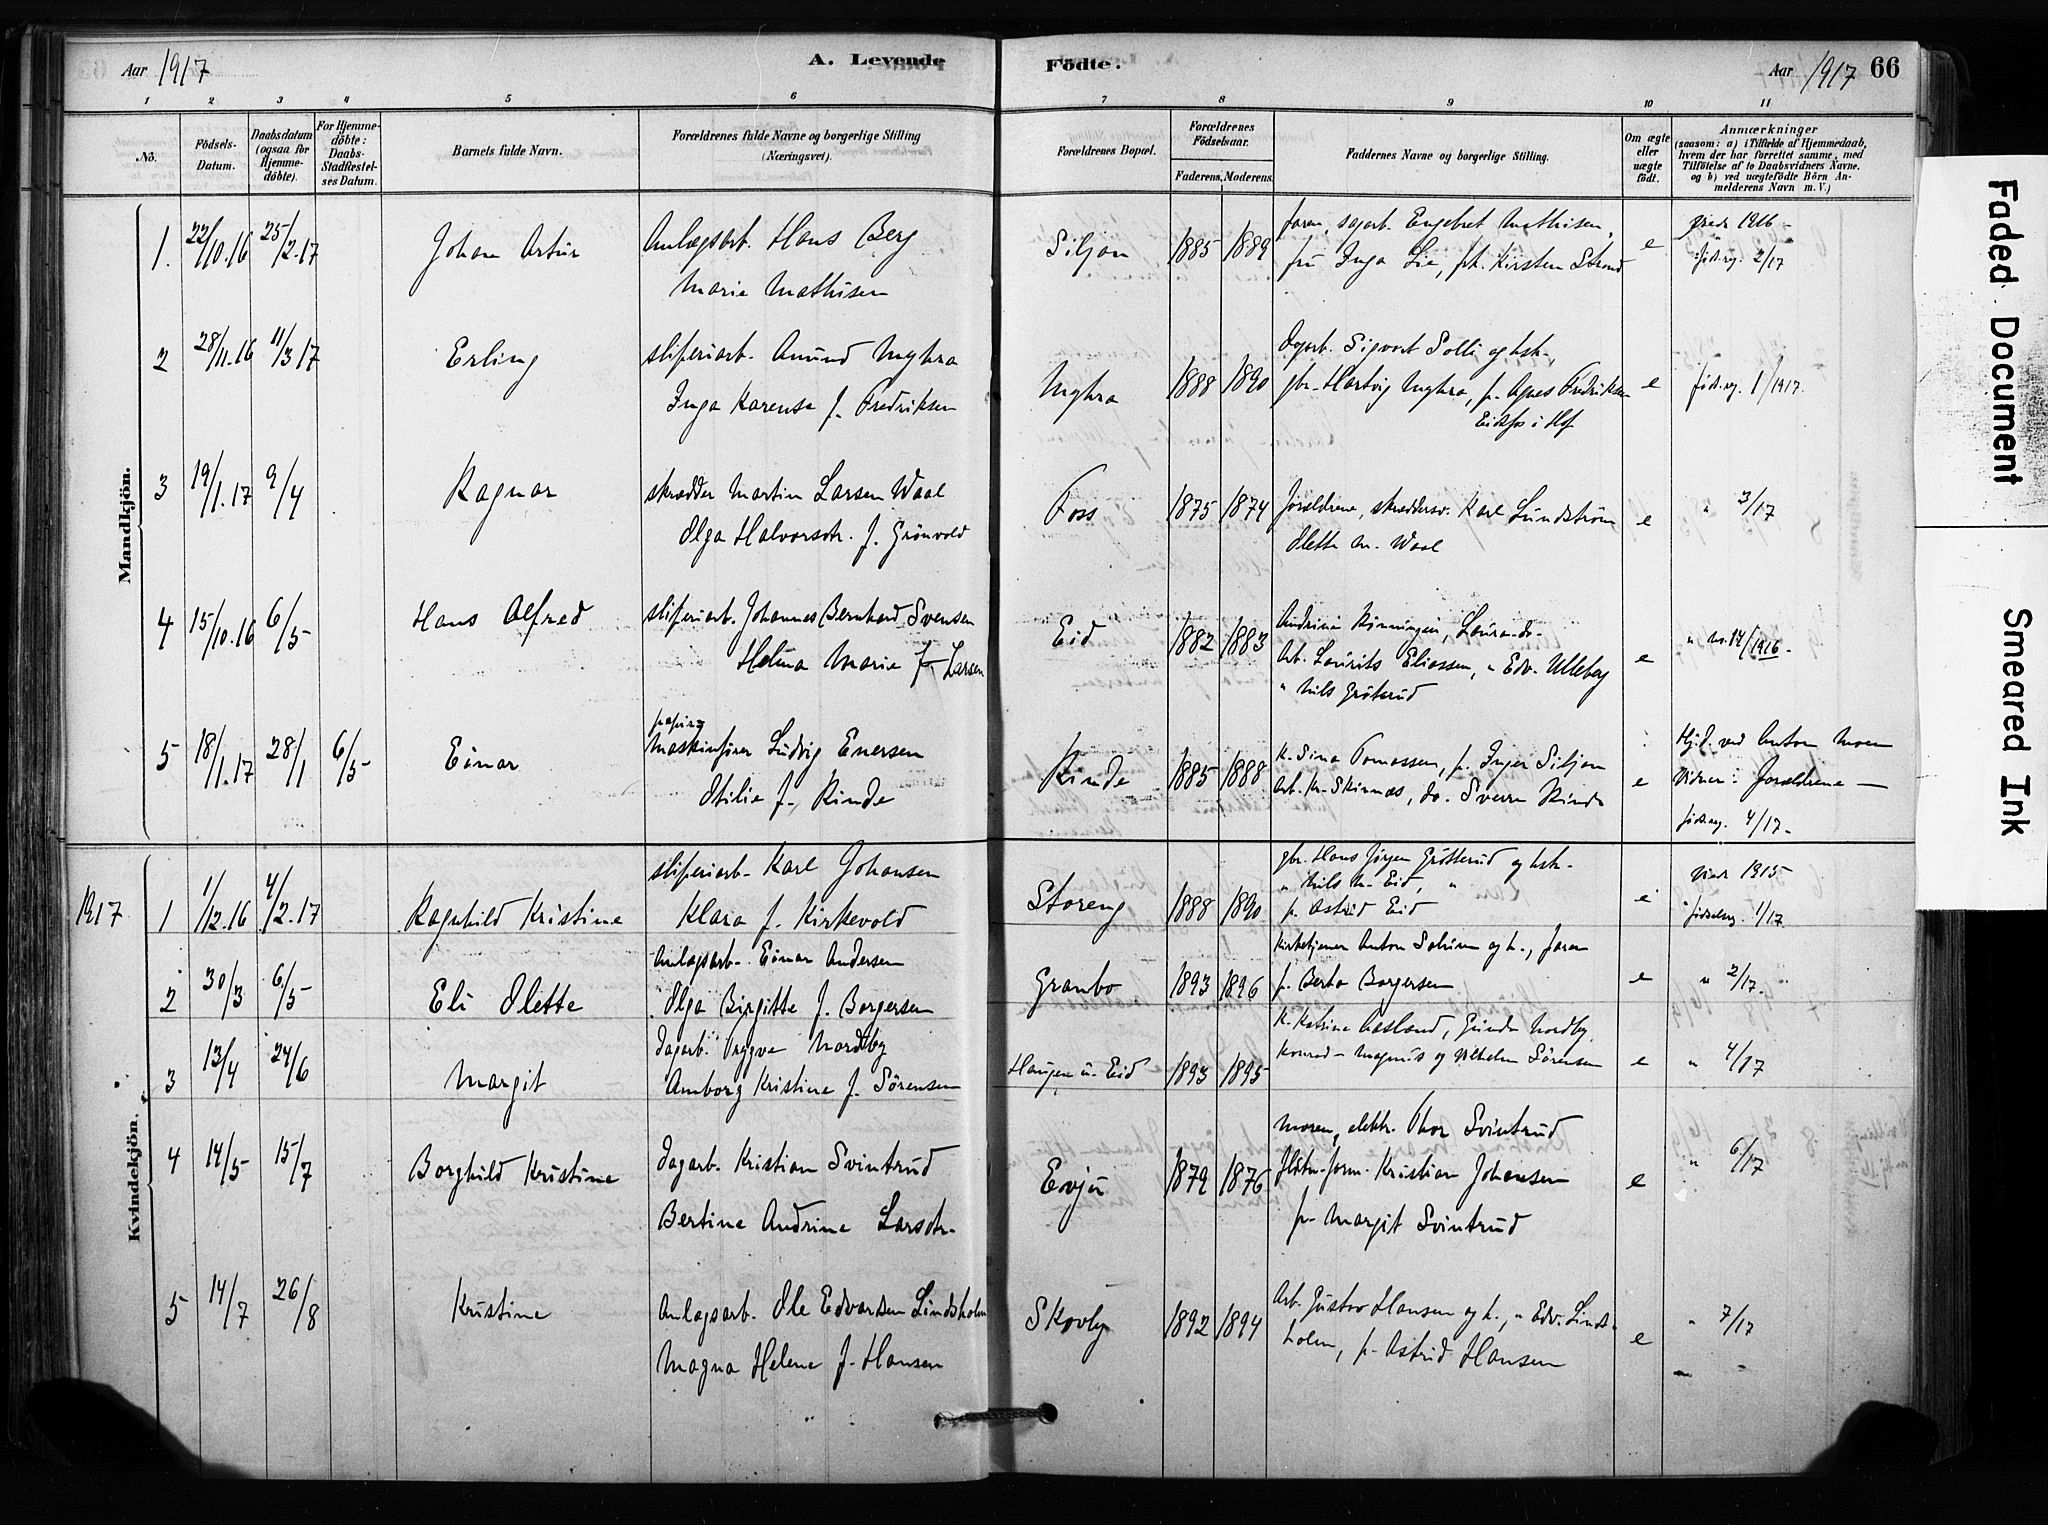 Aar 1917
A. Levende
Födte.
Aar 1917
66
1 2 3 4 5 6 7 8 9 10 11
No.
Födsels-Datum.
Daabsdatum (ogsaa for Hjemmedöbte).
For Hjemmedöbte: Daabs-Stadfæstelses Datum.
Barnets fulde Navn.
Forældrenes fulde Navne og borgerlige Stilling (Næringsvei).
Forældrenes Bopæl.
Forældrenes Födselsaar.
Faderens. Moderens.
Faddernes Navne og borgerlige Stilling.
Om ægte eller uægte födt.
Anmærkninger
(saasom: a) i Tilfælde af Hjemmedaab, hvem der har forrettet samme, med Tilföielse af to Daabsvidners Navne, og b) ved uægtefödte Börn Anmelderens Navn m. V.)
Mandkjön.
1. 22/10.16 25/2.17 Johan Artur
Anlægsarb. Hans Berg
Marie Mathisen
Siljan 1885 1889
faren, sagarb. Engebret Mathisen,
fru Inga Lie, frk. Kirsten Strand
e
1916 -
föd.reg. 2/17
2 28/11.16 11/3 17 Erling
sliperiarb. Amund Myhra
Inga Karense f. Fredriksen
Myhra 1888 1890
Dagarb. Sigvart Solli og hstr.,
gbr. Hartvig Myhra, p. Agnes Fredriksen
Eidsfos i Hof
e
föd.reg. 1/1917.
3 19/1.17 9/4 Ragnar
skrædder Martin Larsen Waal
Olga Halvorsdtr. f. Grönvold
Foss 1875 1874
forældrene, skræddersv. Karl Lundström
Olette M. Waal
e
" 3/17
4 15/10.16 6/5 Hans Alfred
sliperiarb. Johannes Bernhard Svensen
Helma Marie f. Larsen
Eid 1882 1883
Andrine Rönningen, Laura do.
Arb. Laurits Eliassen, " Edv. Ulleberg
" Nils Gröterud
e
" No. 14/1916.
5 18/1.17 28/1 6/5 Einar
papir-
maskinfører Ludvig Enersen
Otilie f. Rinde
Rinde 1885 1888
K. Sina Tomassen, p. Inger Siljan
Arb. Kr. Skinnæs, do. Sverre Rinde
e
Hj.d. ved Anton Moen
Vidner: forældrene —
föd.reg. 4/17.
Kvindekjön.
1917
1 1/12.16 4/2.17 Ragnhild Kristine
sliperiarb. Karl Johansen
Klara f. Kirkevold
Storeng 1888 1890
gbr. Hans Jörgen Grötterud og hstr.
" Nils M. Eid, "
p. Astrid Eid
e
1915
födselsreg. 1/17
2 30/3 6/5 Eli Olette
Anlægsarb. Einar Andersen
Olga Birgitte f. Borgersen
Granbo 1893 1896
Kirketjener Anton Solum og h., faren
p. Berta Borgersen
e
" 2/17.
3 13/4 24/6 Margit
Dagarb. Trygve Nordby
Amborg Kristine f. Sörensen
Haugen u. Eid 1893 1895
K. Katrine Aasland, Gunda Nordby
Konrad - Magnus og Vilhelm Sörensen
e
" 4/17
4 14/5 15/7 Borghild Kristine
Dagarb. Kristian Svintrud
Bertine Andrine Larsdtr.
Evju 1879 1876
moren, elektr. Thor Svintrud
fløtn.form. Kristian Johansen
p. Margit Svintrud
e
" 6/17
5 14/7 26/8 Kristine
Anlægsarb. Ole Edvardsen Lindsholm
Magna Helene f. Hansen
Skovly 1892 1894
Arb. Gustav Hansen og h., " Edv. Linds-
holm, p. Astrid Hansen
e
" 7/17
Faded Document
Smeared Ink